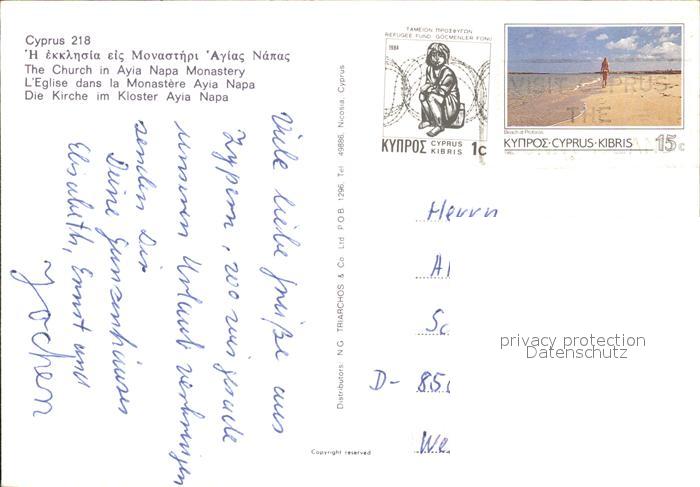 Cyprus 218
Ἡ ἐκκλησία εἰς Μοναστήρι Ἁγίας Νάπας
The Church in Ayia Napa Monastery
L'Eglise dans la Monastère Ayia Napa
Die Kirche im Kloster Ayia Napa
Viele liebe Grüße aus
Zypern, wo wir gerade
unseren Urlaub verbringen
senden Dir
Deine Gunzenhauser
Elisabeth, Ernst und
Jochen
Distributors: N G TRIARCHOS & Co Ltd P.O.B. 1296, Tel 49886, Nicosia, Cyprus
Copyright reserved
ΤΑΜΕΙΟΝ ΠΡΟΣΦΥΓΩΝ
REFUGEE FUND GÖCMENLER FONU
1984
ΚΥΠΡΟΣ CYPRUS KIBRIS 1c
VISIT CYPRUS
THE
Beach at Protaras
ΚΥΠΡΟΣ·CYPRUS·KIBRIS 15c
1985
Herrn
D- 85
We
privacy protection
Datenschutz